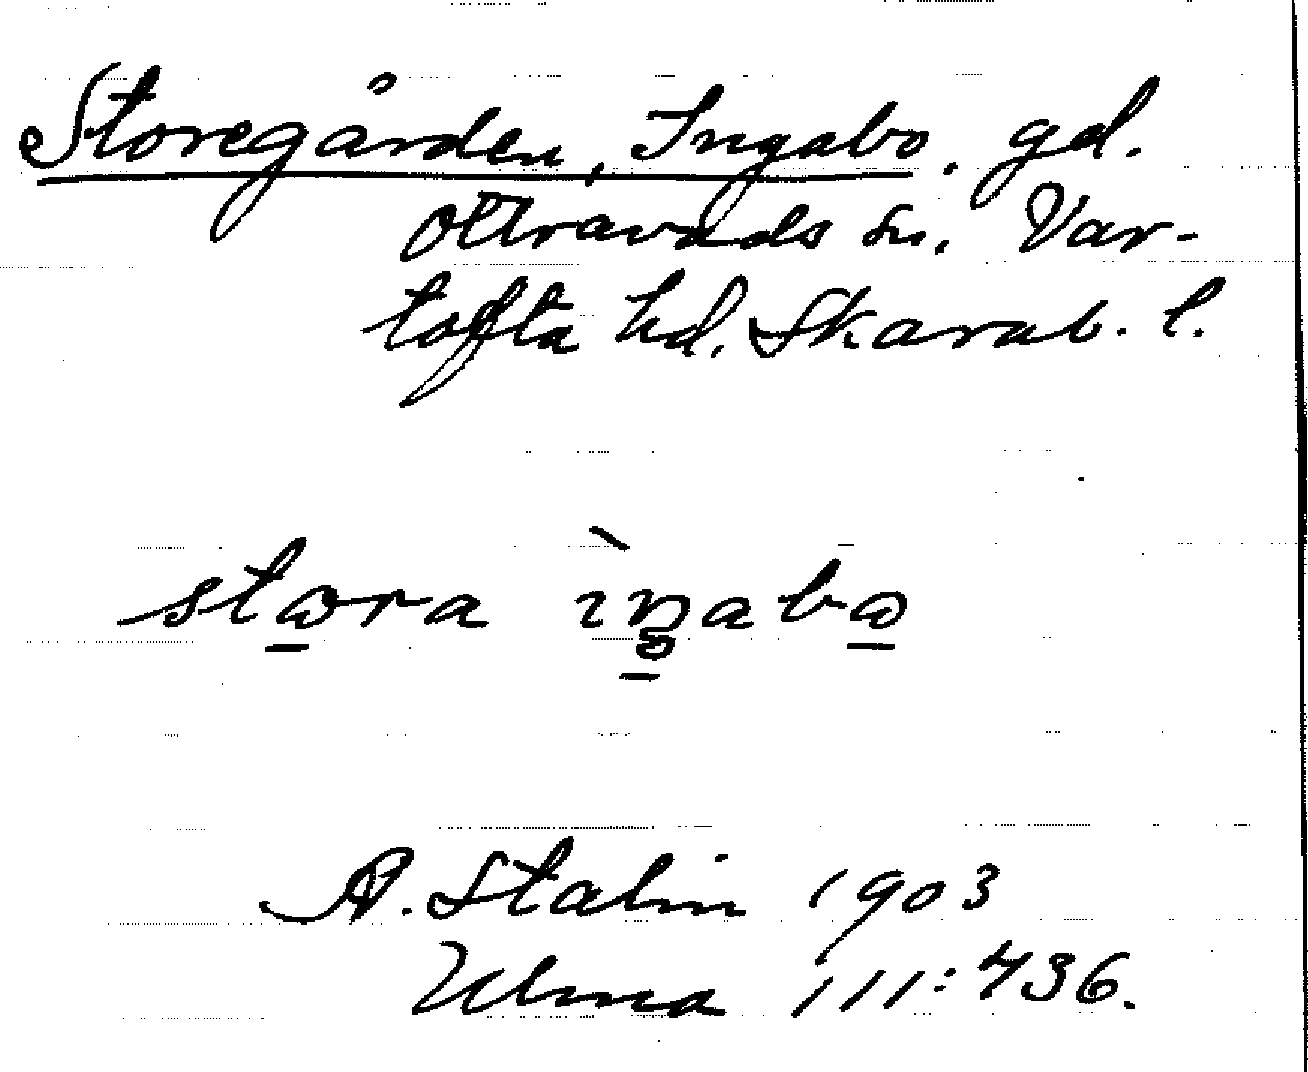 Storegården, Ingabo, gd.
Ottravads sn. Var-
tofta hd. Skarab. l.
stωra ìŋabω
A. Stalin 1903
Ulma 111:436.